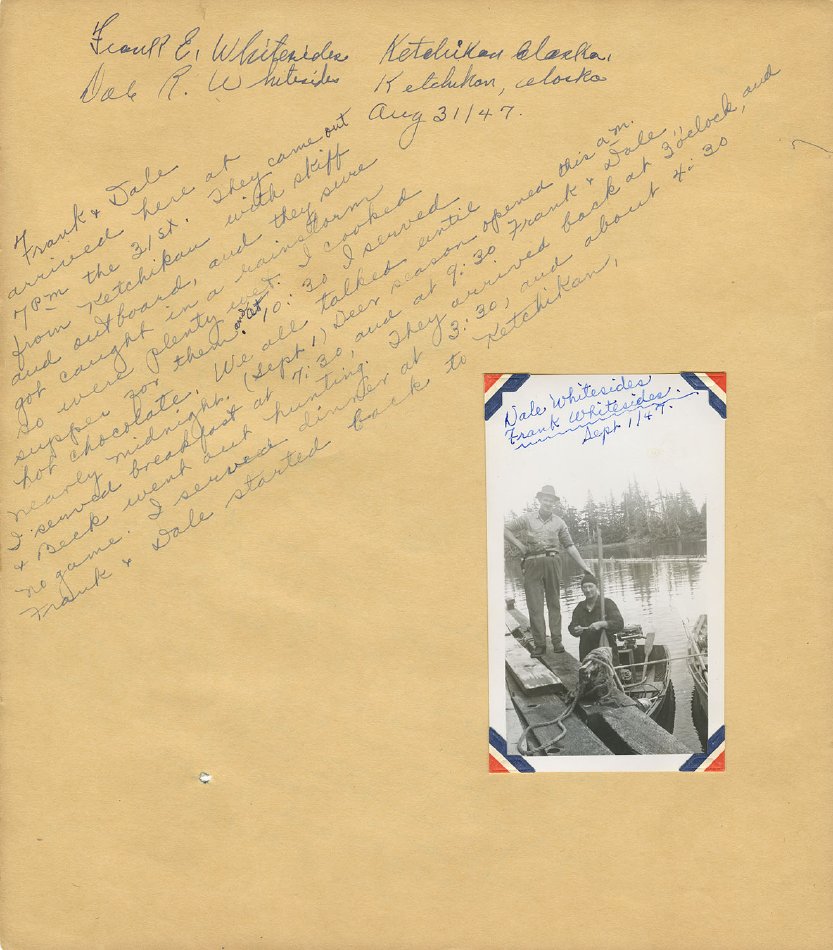 Frank E. Whitesides Ketchikan Alaska.
Dale R. Whitesides Ketchikan, Alaska
Aug 31/47.
Frank & Dale
arrived here at
7 PM the 31st. They came out
from Ketchikan with skiff
and outboard, and they sure
got caught in a rainstorm
so were plenty wet. I cooked
supper for them. and at 10:30 I served
hot chocolate. We all talked until
nearly midnight. (Sept 1) Deer season opened this a.m.
I served breakfast at 7:30, and at 9:30 Frank & Dale,
& Beck went out hunting. They arrived back at 3 o'clock, and
no game. I served dinner at 3:30, and about 4:30
Frank & Dale started back to Ketchikan.
Dale Whitesides
Frank Whitesides.
Sept 1/47.